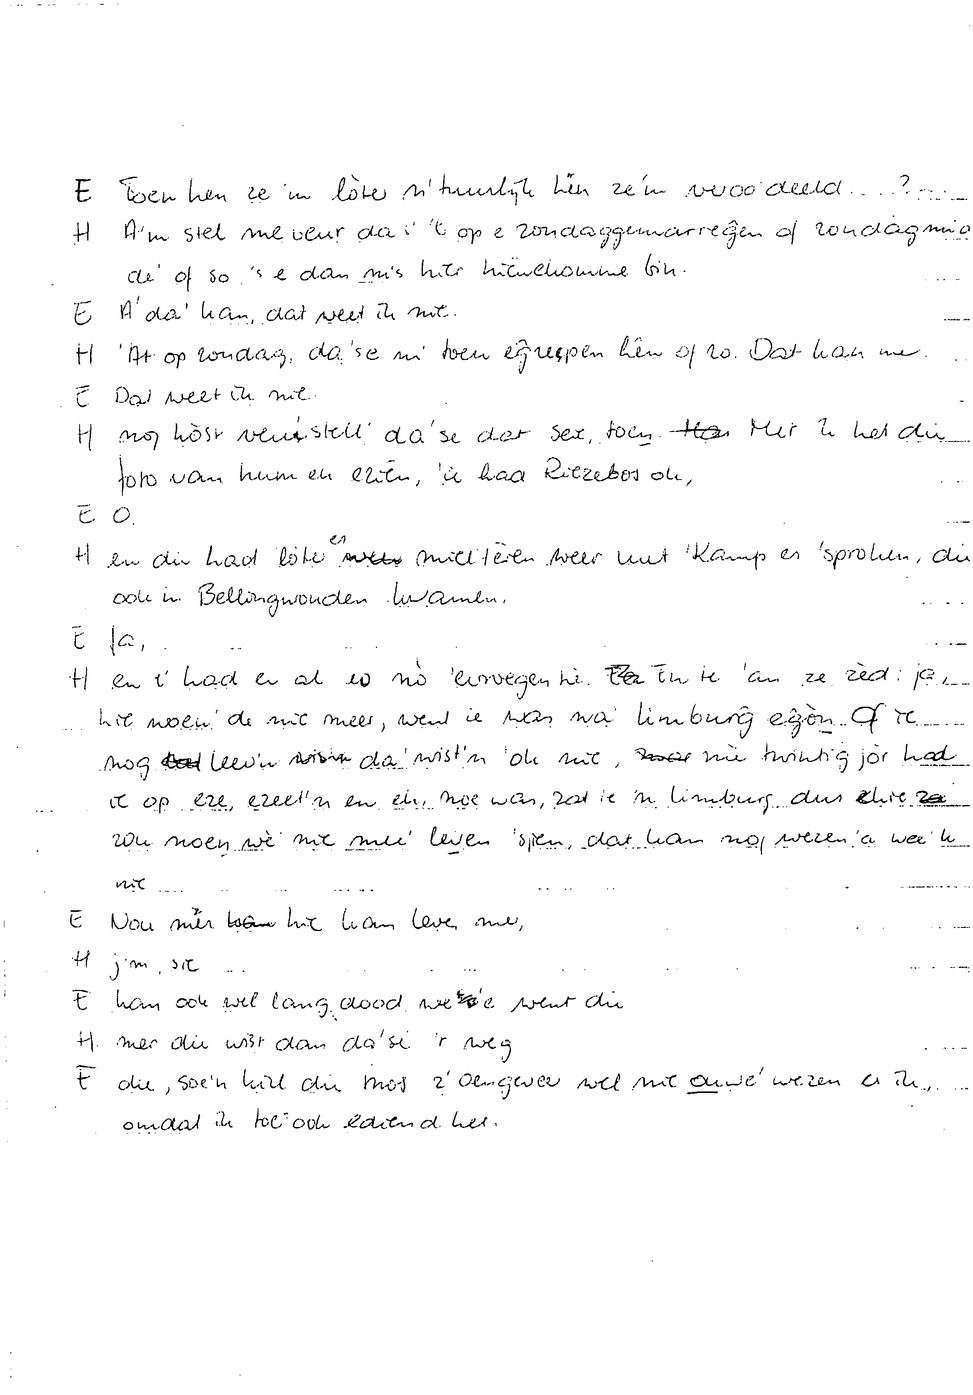 E Toen hen ze 'm lôter n' tuurlijk hên ze'm veroo'deeld....?....
H A'm stel me veur da i' 't op e zondaggemarregen of zondagmid
de' of so 's e dan ms hier binnekomme bin.
E A' da' kan, dat weet ik nie.
H 'At op zondag, da'se m' toen egreepen hên of zo. Dat kan me.
E Dat weet ik nie.
H nog host veurstell' da'se dat sex, toen Mer ik het die
foto van hum en ezien, 'ie had Riezebos ok,
E O.
H en die had lôte es miell'tēren weer uut 'Kamp es 'sproken, die
ook in Bellingwouden kwamen.
E Ja,
H en i' had er al zo nò 'ervoegen hi. En ie 'an ze zèd: ja,
hie noen' de nie meer, went ie was na' limburg egòn. Of ie
nog leev'n da' wist'n 'ok nie, nie twintig jôr had
ie op eze, ezeet'n en eh, noe was, zat ie 'n limburg dus
zou noen wè' nie mee' leven 's pen, dat kan nog wezen 'a wee 'k
nie ....
E Nou mêr hie kan leve me,
H j'm, sie ..
E kan ook wel lang dood we'e went die
H mer die wist dan da'se 'r weg
E die, soe'n kirl die mos z'oengeveer wel nie ouwe' wezen es ik,
omdat ik toe' ook ediend heb.